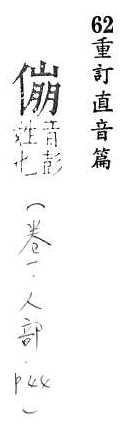 62重訂直音篇
傰
音彭
姓也
(卷一.人部.p44)